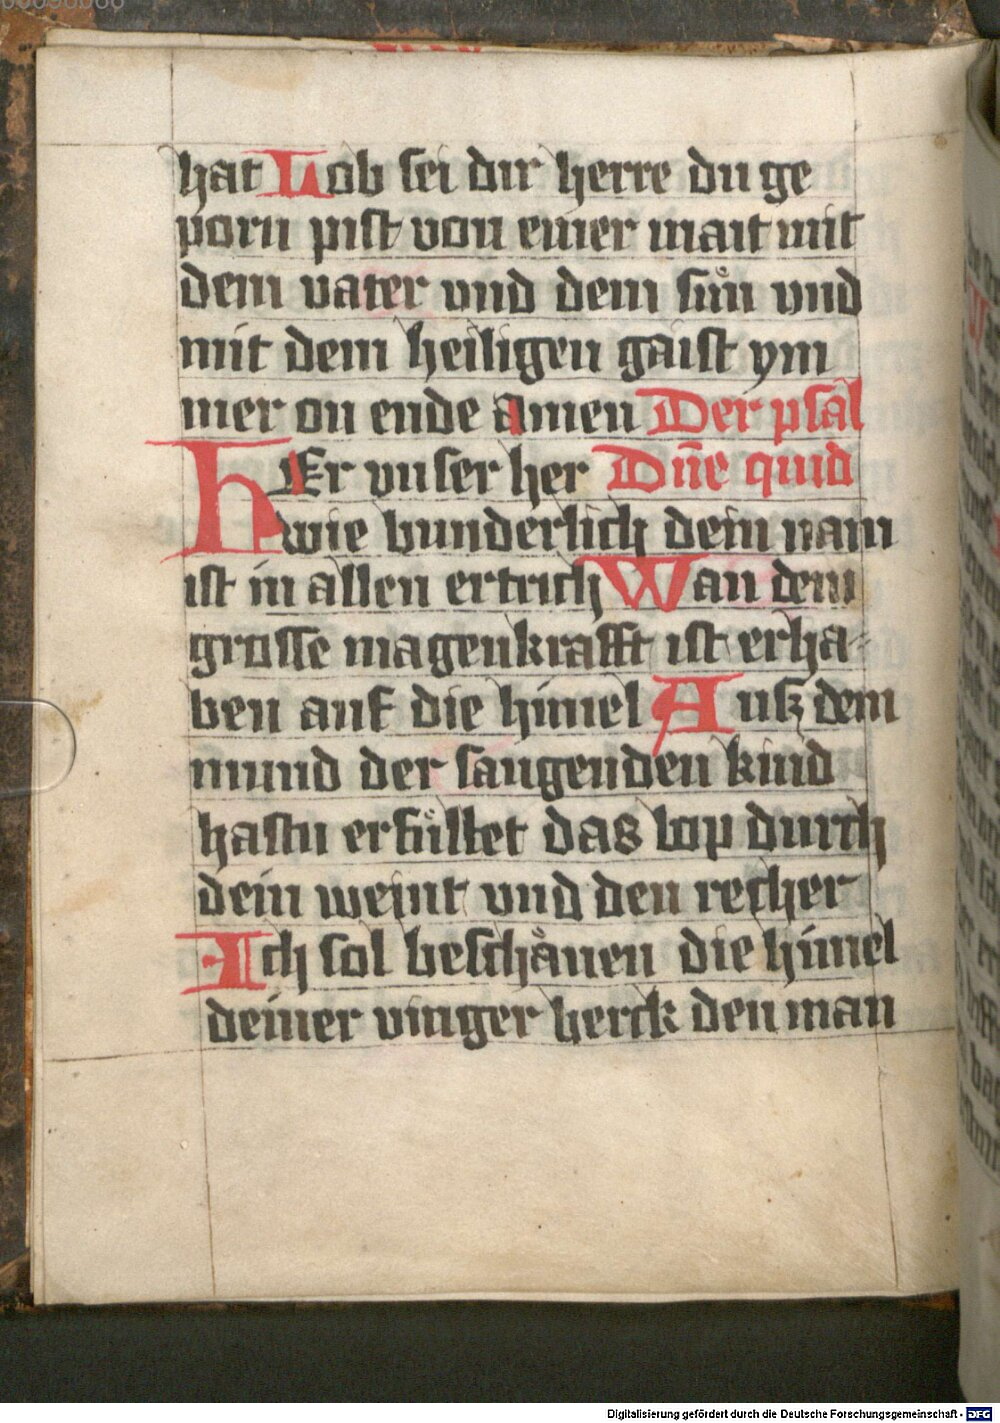 hat Lob sei dir herre du ge
porn pist von einer mait mit
dem vater vnd dem sůn vnd
mit dem heiligen gaist ym
mer on ende amen Der psal
HEr vnser her Dn̄e quid
wie bunderlich dein nam
ist in allen ertrich Wan dein
grosse magenkrafft ist erha-
ben auf die himel Auſz dem
mund der saugenden kind
hastu erfůllet das lop durch
dein veint vnd den recher
Ich sol beschåuen die himel
deiner vinger berck den man
Digitalisierung gefördert durch die Deutsche Forschungsgemeinschaft - DFG